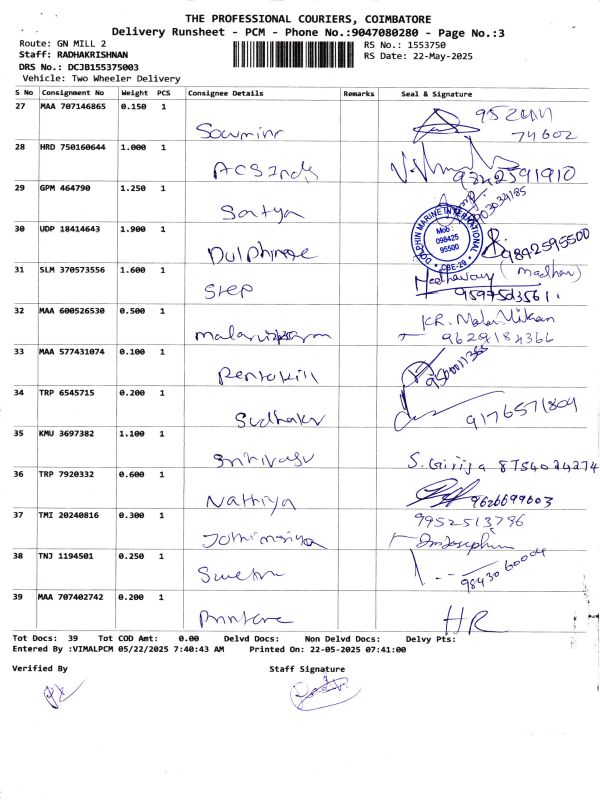 THE PROFESSIONAL COURIERS, COIMBATORE
Delivery Runsheet - PCM - Phone No.:9047080280 - Page No.:3
Route: GN MILL 2
RS No.: 1553750
Staff: RADHAKRISHNAN
RS Date: 22-May-2025
DRS No.: DCJB155375003
Vehicle: Two Wheeler Delivery
S No Consignment No Weight PCS Consignee Details Remarks Seal & Signature
27 MAA 707146865 0.150 1
74602
28 HRD 750160644 1.000 1
ACS Inds 9342591910
29 GPM 464790 1.250 1
Satya
30 UDP 18414643 1.900 1
Dulphine 9842595500
DOLPHIN MARINE INTERNATIONAL
Mob :
098425
95500
CBE-29
31 SLM 370573556 1.600 1
Step (madhav)
9597503561
32 MAA 600526530 0.500 1
KR. Malar Vikan
9629184366
33 MAA 577431074 0.100 1
Pentakill 9500011365
34 TRP 6545715 0.200 1
Sudhakr 9176571804
35 KMU 3697382 1.100 1
Srinivasu S. Girija 8754024274
36 TRP 7920332 0.600 1
Nathiya 9626699603
37 TMI 20240816 0.300 1
9952513796
38 TNJ 1194501 0.250 1
Sweta 9843060004
39 MAA 707402742 0.200 1
HR
Tot Docs: 39 Tot COD Amt: 0.00 Delvd Docs: Non Delvd Docs: Delvy Pts:
Entered By :VIMALPCM 05/22/2025 7:40:43 AM Printed On: 22-05-2025 07:41:00
Verified By Staff Signature